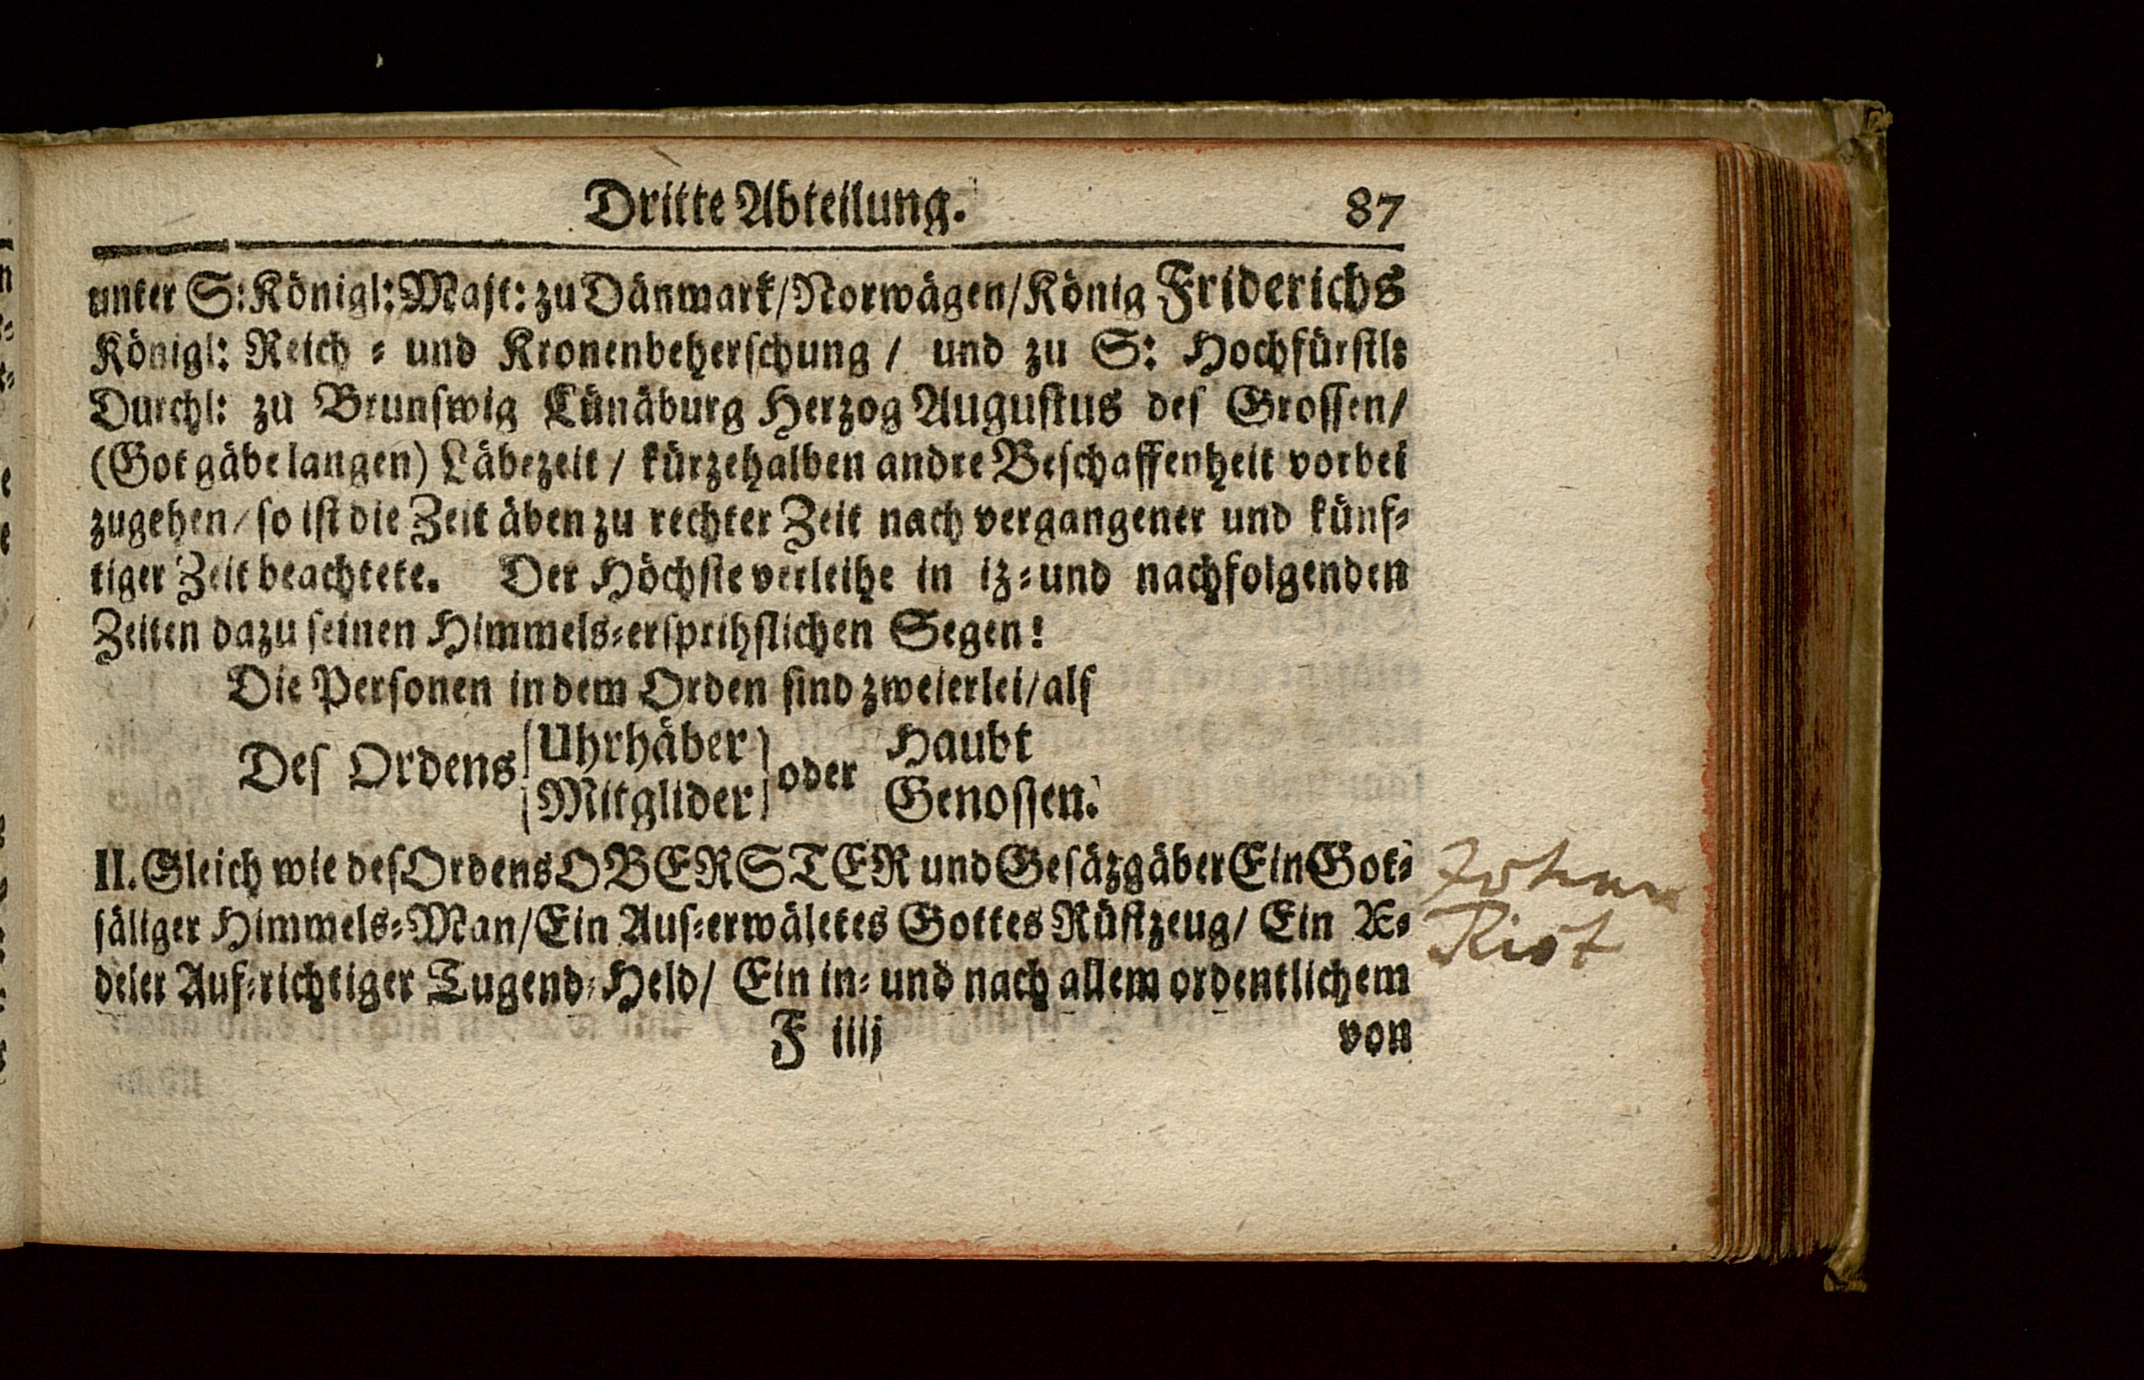 Dritte Abteilung. 87
unter S: Königl: Majt: zu Dänmark/ Norwägen/ König Friderichs
Königl: Reich = und Kronenbeherschung / und zu S: Hochfürstl:
Durchl: zu Brunswig Lünäburg Herzog Augustus des Grossen/
(Got gäbe langen) Läbezeit / kürzehalben andre Beschaffenheit vorbei
zugehen/ so ist die Zeit äben zu rechter Zeit nach vergangener und künf=
tiger Zeit beachtete. Der Höchste verleihe in iz= und nachfolgenden
Zeiten dazu seinen Himmels=ersprihslichen Segen!
Die Personen in dem Orden sind zweierlei/ als
Des Ordens { Uhrhäber } oder Haubt
{ Mitglider } Genossen.
II. Gleich wie des Ordens OBERSTER und Gesäzgäber Ein Got=
säliger Himmels=Man/ Ein Aus=erwäletes Gottes Rüstzeug/ Ein Æ=
deler Auf=richtiger Tugend=Held/ Ein in= und nach allem ordentlichem
F iiij von
Johann
Rist